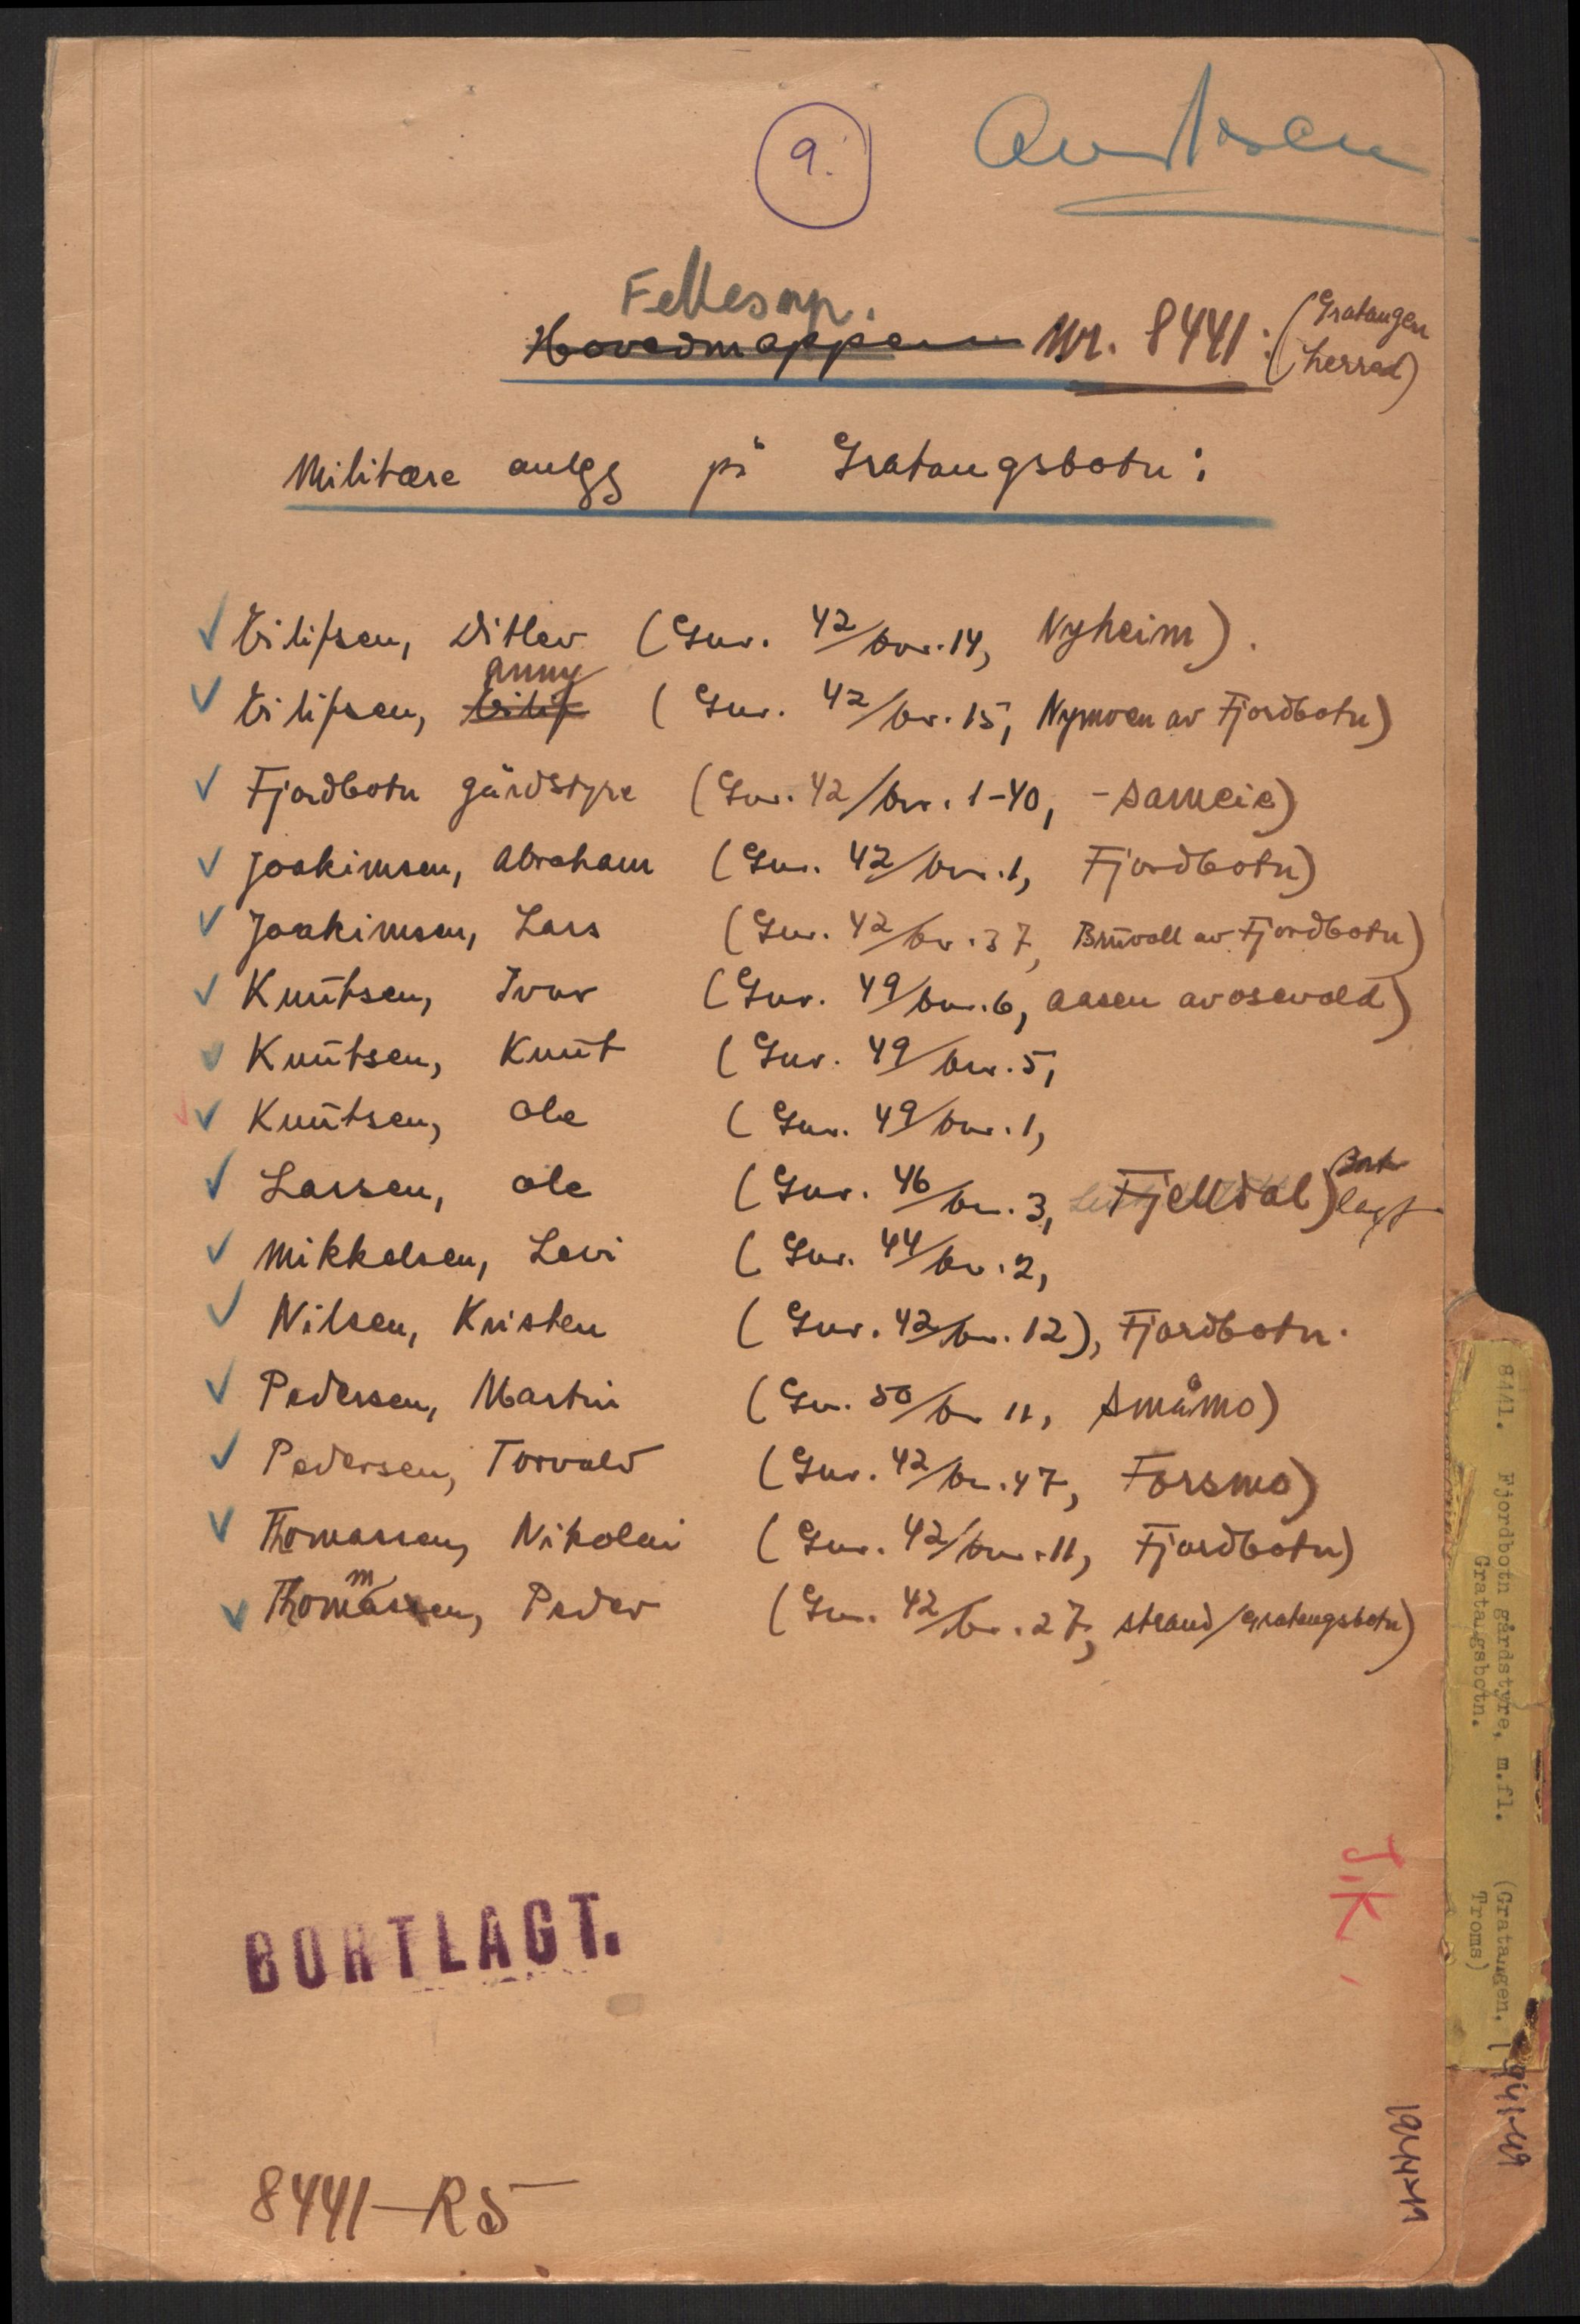 9.
Fellesmp.
Hovedmappen Nr. 8441: (Gratangen
herred)
Militære anlgg på Gratangsbotn:
Eilifsen, Ditlev (Gnr. 42/bnr. 14, Nyheim).
Anny
Eilifsen, Eilif (Gnr. 42/br. 15, Nymoen av Fjordbotn)
Fjordbotn gårdstyre (Gnr. 42/bnr. 1-40, - sameie)
Joakimsen, Abraham (Gnr. 42/bnr. 1, Fjordbotn)
Joakimsen, Lars (Gnr. 42/br. 37, Brŭvoll av Fjordbotn)
Knŭtsen, Ivar (Gnr. 49/bnr. 6, Aasen av Osevold)
Knŭtsen, Knŭt (Gnr. 49/bnr. 5,
Knŭtsen, Ole (Gnr. 49/bnr. 1,
Larsen, Ole (Gnr. 46/bnr. 3, Fjelldal) Bort
lagt
Mikkelsen, Levi (Gnr. 44/br. 2,
Nilsen, Kristen (Gnr. 42/br. 12), Fjordbotn.
Pedersen, Martin (Gnr. 50/br 11, Småmo)
Pedersen, Torvald (Gnr. 42/br. 47, Forsmo)
Thomassen, Nikolai (Gnr. 42/bnr. 11, Fjordbotn)
m
Thomassen, Peder (Gnr. 42/br. 27, Strand/Gratangsbotn)
BORTLAGT.
8441-R5
J.K.
8441. Fjordbotn gårdstyre, m.fl. (Gratangen,
Gratangsbotn. Troms)